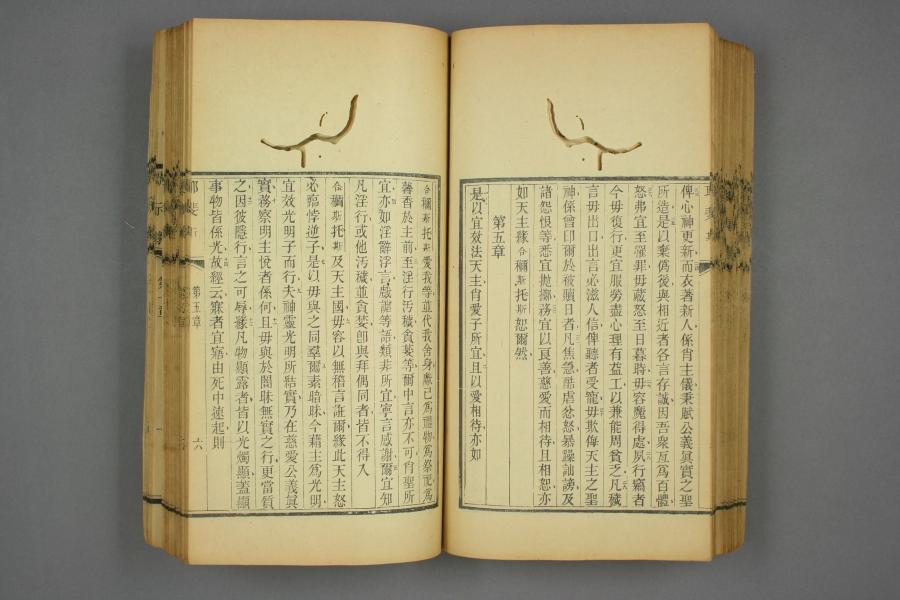 俾心神更新而衣著新人係肖主儀秉賦公義眞實之聖
所造是以棄僞後與相近者各言存誠因吾衆互爲百體
怒弗宜至罹罪毋藏怒至日暮時毋容魔得處夙行竊者
今毋復行更宜服勞盡心理有益工以兼能周貧乏凡穢
言毋出口出言必滋人信俾聽者受寵毋欺侮天主之聖
神係曾印爾於被贖日者凡焦急酷虐忿怒暴躁訕謗及
諸怨恨等惡宜拋擲務宜以良善慈愛而相待且相恕亦
如天主緣合穪斯托斯恕爾然
第五章
是以宜效法天主肖愛子所宜且以愛相待亦如
合穪斯托斯愛我等並代我舍身獻己爲禮物爲祭祀爲
馨香於主前至淫行汚穢貪婪等爾中言亦不可肖聖所
宜亦如淫辭浮言戲謔等語類非所宜寧言感謝爾宜知
凡淫行或他汚穢並貪婪卽與拜偶同者皆不得入
合穪斯托斯及天主國毋容以無稽言誑爾緣此天主怒
必臨悖逆子是以毋與之同羣爾素暗昧今藉主爲光明
宜效光明子而行夫神靈光明所結實乃在慈愛公義眞
實務察明主悅者係何且毋與於闇昧無實之行更當質
之因彼隱行言之可辱緣凡物顯露者皆以光燭顯蓋顯
事物皆係光故經云寐者宜寤由死中速起則
第五章
六